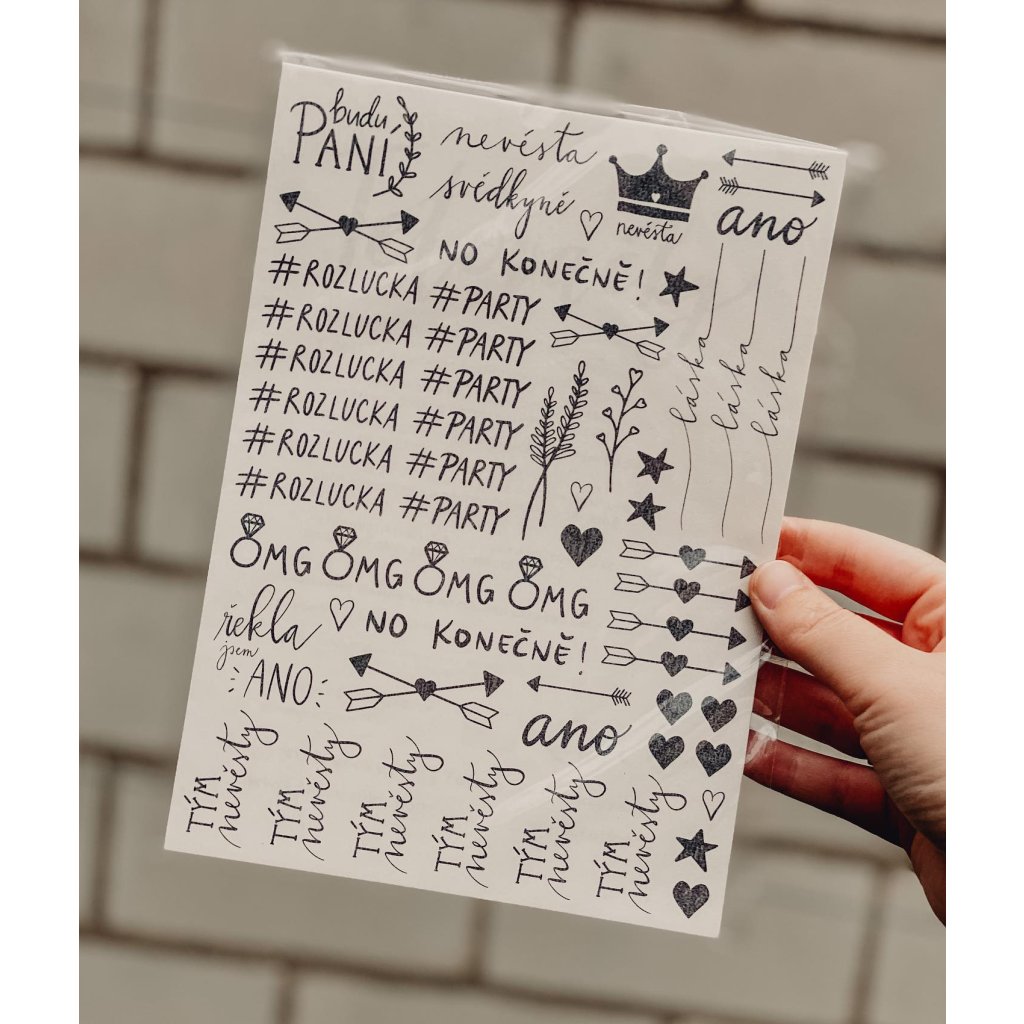 budu
PANÍ
nevěsta
svědkyně
nevěsta
ano
NO KONEČNĚ!
#ROZLUCKA #PARTY
#ROZLUCKA #PARTY
#ROZLUCKA #PARTY
#ROZLUCKA #PARTY
#ROZLUCKA #PARTY
#ROZLUCKA #PARTY
láska
láska
láska
OMG OMG OMG OMG
řekla
jsem
ANO
NO KONEČNĚ!
ano
TÝM
nevěsty
TÝM
nevěsty
TÝM
nevěsty
TÝM
nevěsty
TÝM
nevěsty
TÝM
nevěsty